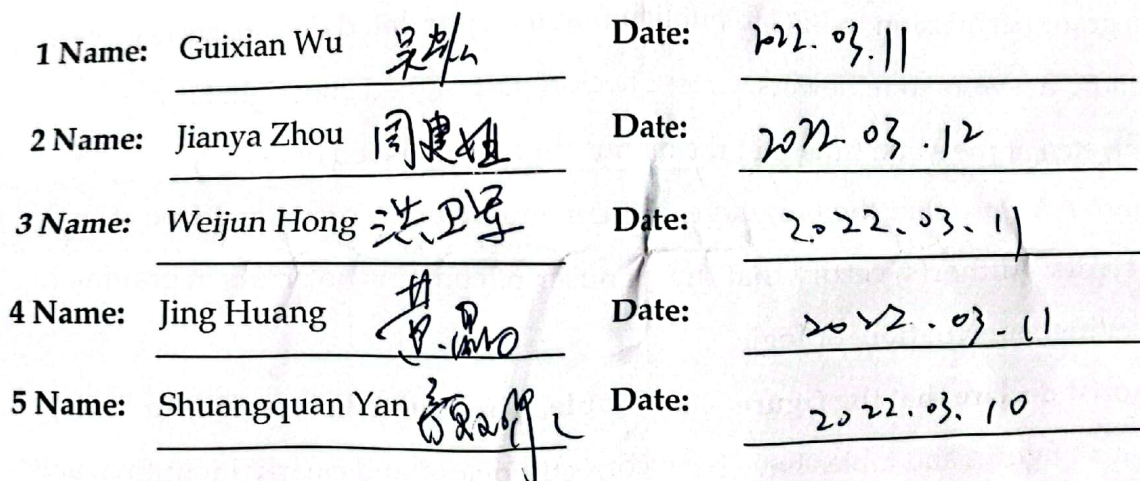 1 Name: Guixian Wu 吴 Date: 2022.03.11
2 Name: Jianya Zhou 周建娅 Date: 2022.03.12
3 Name: Weijun Hong 洪卫军 Date: 2022.03.11
4 Name: Jing Huang 黄晶 Date: 2022.03.11
5 Name: Shuangquan Yan Date: 2022.03.10